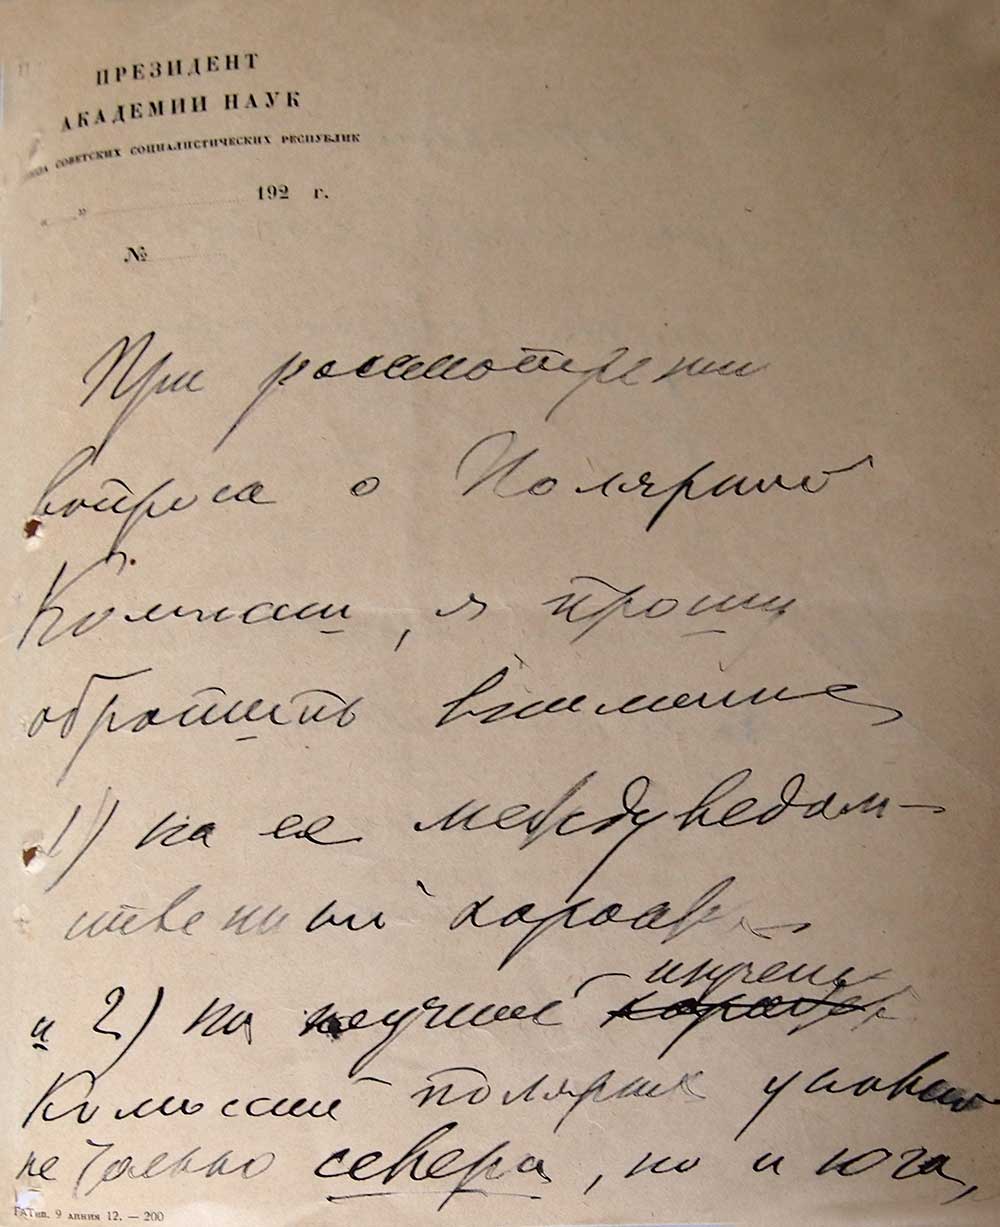 ПРЕЗИДЕНТ
АКАДЕМИИ НАУК
СОВЕТСКИХ СОЦИАЛИСТИЧЕСКИХ РЕСПУБЛИК
" " 192 г.
№
При рассмотрении
вопроса о Полярной
Комиссии, я прошу
обратить внимание
1) на ее междуведом-
ственный характер
и 2) на научное изучение
Комиссией полярных условий
не только севера, но и юга,
ГАТип. 9 линия 12. — 200